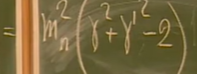 = m_n^2 (γ^2 + γ'^2 - 2)